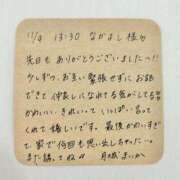 11/4 13:30 ながよし様
先日も ありがとうございましたっ!!
少しずつ、お互い緊張せずに お話
できて 仲良しになれてる気がしてる
かわいい、きれいって いっぱい言って
くれて 嬉しいです。最後 かわいすぎ
て 家で何回も思い出しちゃった〜。
また 話してね 月城 まいか